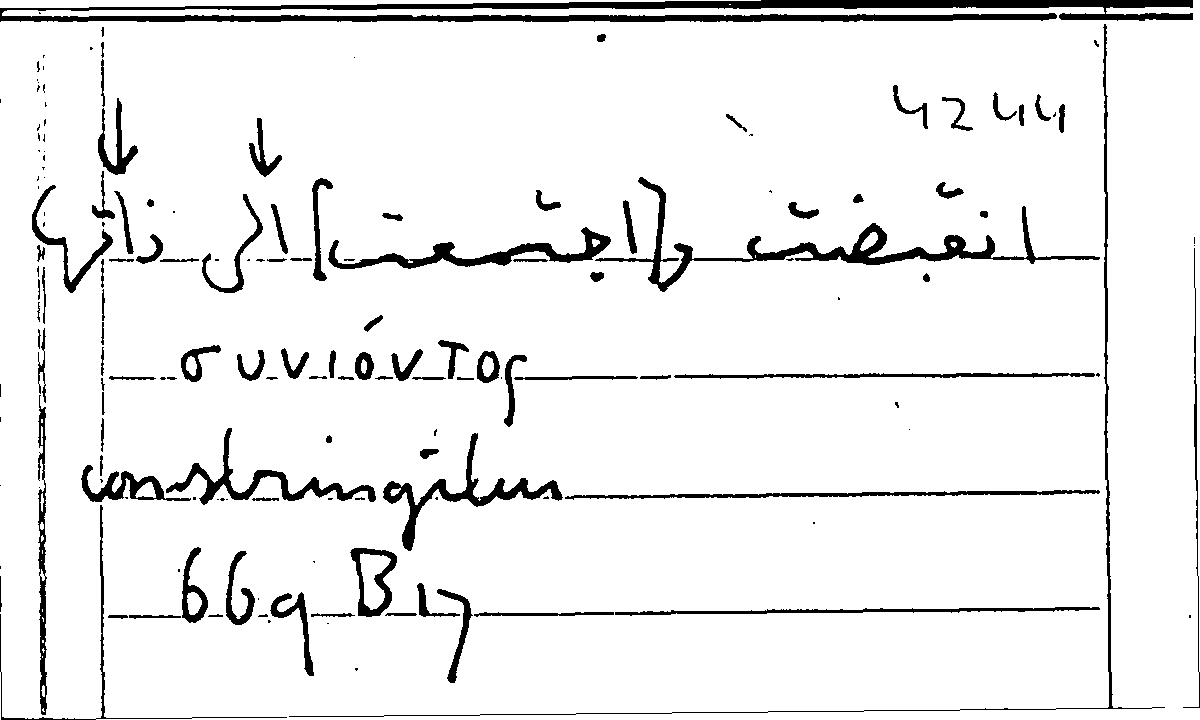 4244
انقبضت و[اجتمعت] الى ذاتها
συνιόντος
constringitur
669 B 17